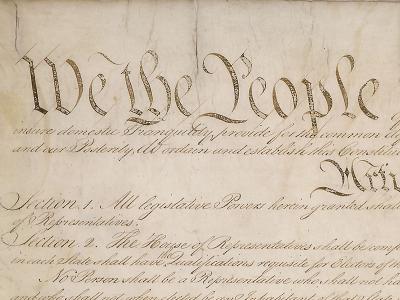 We the People
insure domestic Tranquility, provide for the common
and our Posterity, do ordain and establish this
Section. 1. All legislative Powers herein granted shall
of Representatives.
Section. 2. The House of Representatives shall be
in each State shall have the Qualifications requisite for Electors of the
No Person shall be a Representative who shall not
and who shall not, when elected, be an Inhabitant of